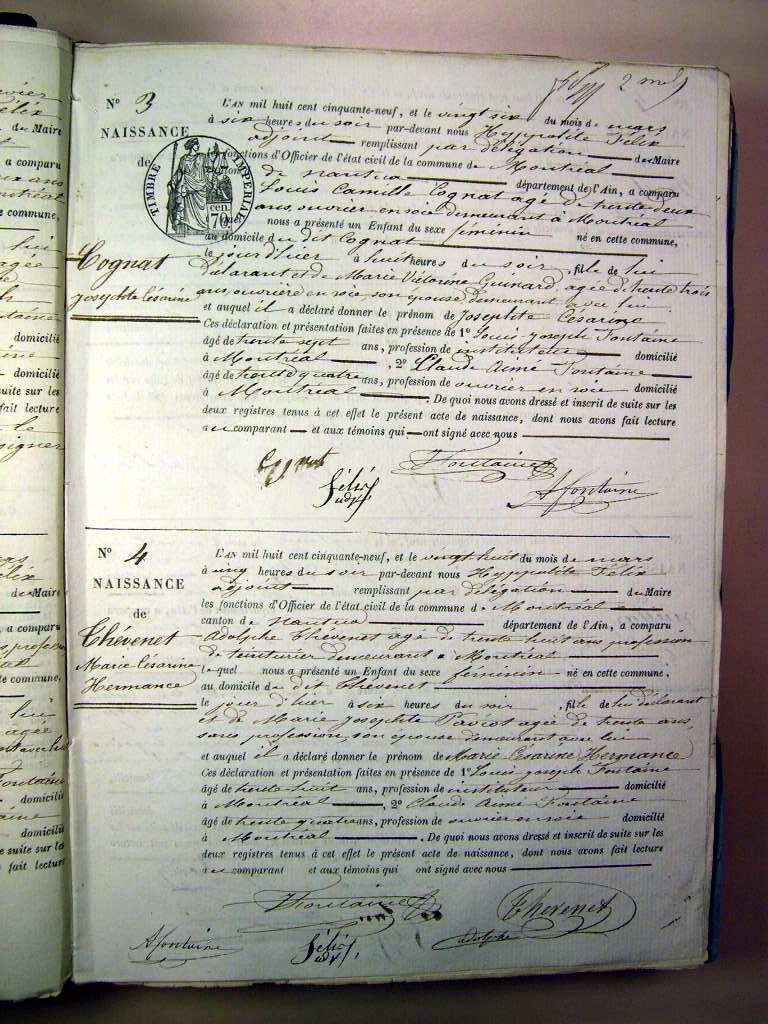 2
N° 3
NAISSANCE
de
Cognat
Josephte Césarine
TIMBRE IMPERIAL
70 cen.
L'AN mil huit cent cinquante-neuf, et le vingt six du mois de mars
à six heures du soir par-devant nous Hyppolite Félix
adjoint remplissant par délégation de Maire
les fonctions d'Officier de l'état civil de la commune de Montréal
de nantua département de l'Ain, a comparu
Louis Camille Cognat agé de trente deux
ans, ouvrier en soie demeurant à Montréal
nous a présenté un Enfant du sexe féminin né en cette commune,
au domicile du dit Cognat
le jour d'hier à huit heures du soir, fille de lui
déclarant et de Marie Victorine Guinard, agée de trente trois
ans ouvrière en soie son épouse demeurant avec lui
et auquel il a déclaré donner le prénom de Josephte Césarine
Ces déclaration et présentation faites en présence de 1° Louis Joseph Fontaine
âgé de trente sept ans, profession de instituteur domicilié
à Montréal, 2° Claude Aimé Fontaine
âgé de trente quatre ans, profession de ouvrier en soie domicilié
à Montréal. De quoi nous avons dressé et inscrit de suite sur les
deux registres tenus à cet effet le présent acte de naissance, dont nous avons fait lecture
au comparant et aux témoins qui ont signé avec nous
Cognat Fontaine
Félix adjt A fontaine
N° 4
NAISSANCE
de
Chevenet
Marie Césarine
Hermance
L'AN mil huit cent cinquante-neuf, et le vingt huit du mois de mars
à cinq heures du soir par-devant nous Hyppolite Félix
adjoint remplissant par délégation de Maire
les fonctions d'Officier de l'état civil de la commune de Montréal
canton de nantua département de l'Ain, a comparu
Adolphe Thevenet agé de trente huit ans profession
de teinturier demeurant à Montréal
lequel nous a présenté un Enfant du sexe féminin né en cette commune,
au domicile du dit Thevenet
le jour d'hier à six heures du soir, fille de lui déclarant
et de Marie Josephte Paviot agée de trente ans,
sans profession, son épouse demeurant avec lui
et auquel il a déclaré donner le prénom de Marie Césarine Hermance
Ces déclaration et présentation faites en présence de 1° Louis Joseph Fontaine
âgé de trente huit ans, profession de instituteur domicilié
à Montréal, 2° Claude Aimé Fontaine
âgé de trente quatre ans, profession de ouvrier en soie domicilié
à Montréal. De quoi nous avons dressé et inscrit de suite sur les
deux registres tenus à cet effet le présent acte de naissance, dont nous avons fait lecture
au comparant et aux témoins qui ont signé avec nous
Fontaine Thevenet
A fontaine Félix adjt adolphe